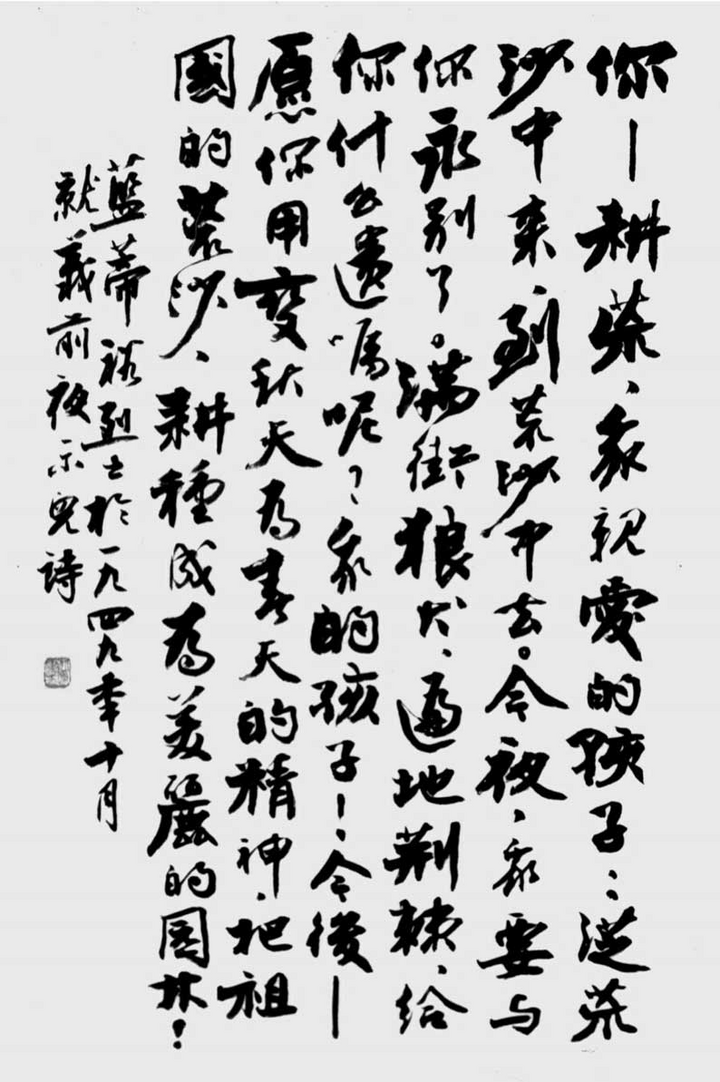 你—耕荒、我親愛的孩子：從荒
沙中来，到荒沙中去。今夜，我要与
你永别了。满街狼犬、遍地荆棘，给
你什么遗嘱呢？我的孩子！今後—
愿你用變秋天为春天的精神，把祖
國的荒沙、耕種成为美麗的园林！
藍蒂裕烈士於一九四九年十月
就義前夜示兒詩